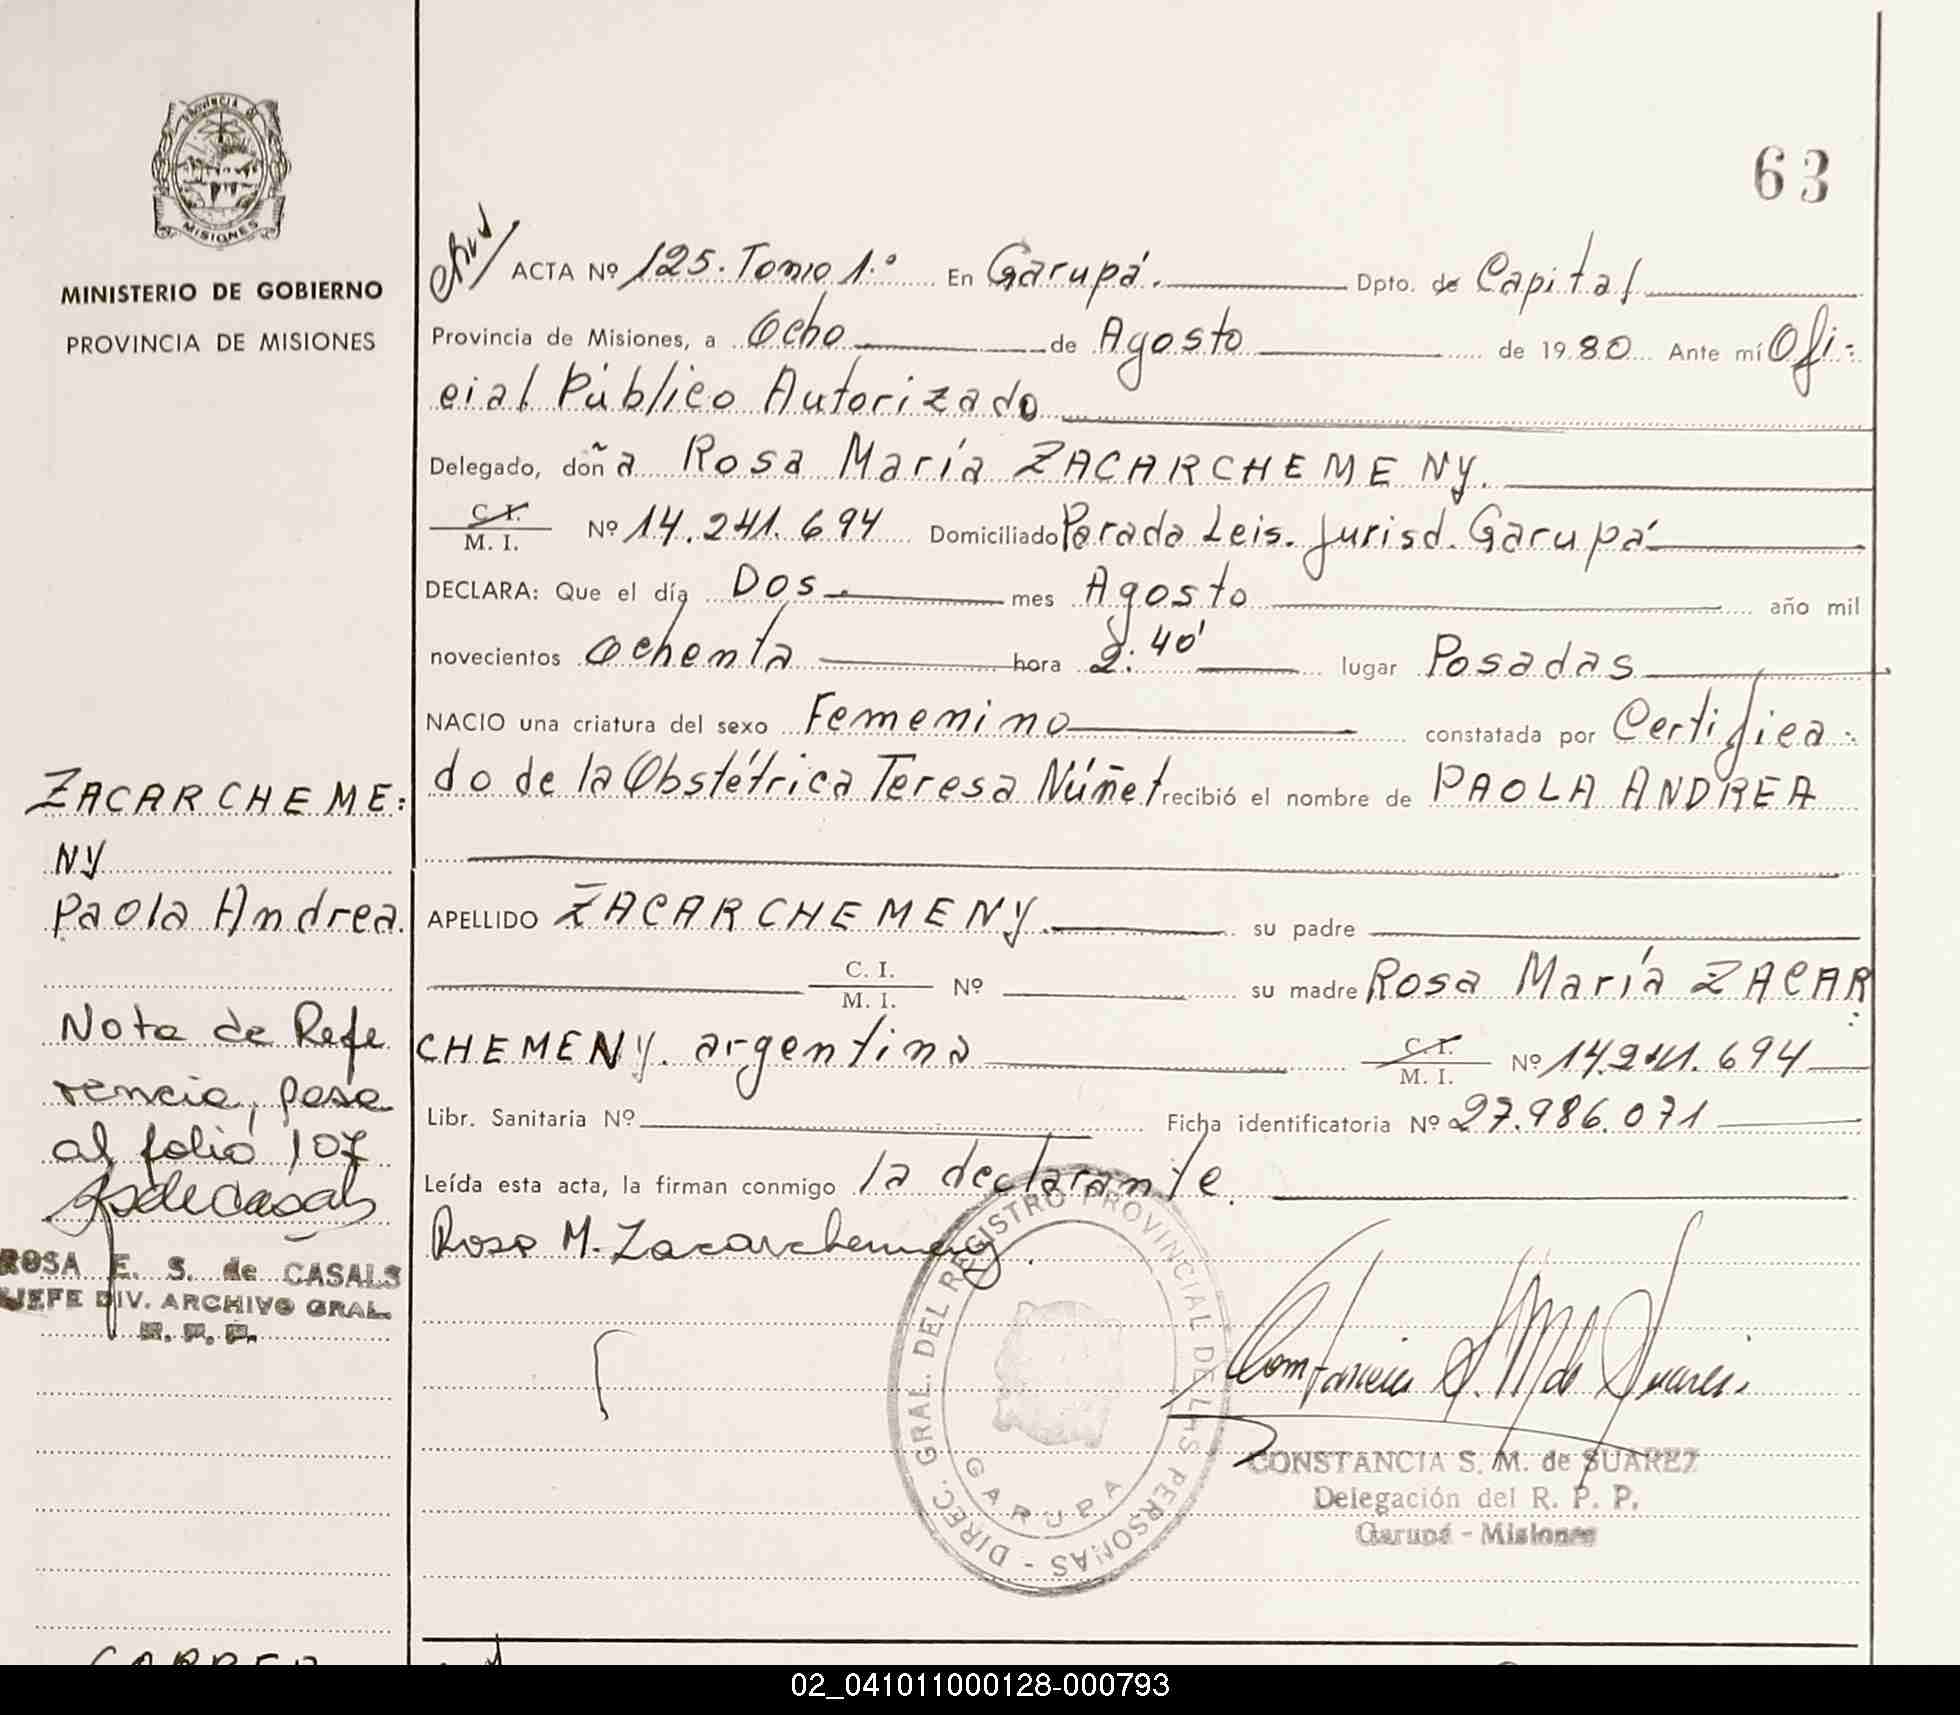 PROVINCIA DE
MISIONES
MINISTERIO DE GOBIERNO
PROVINCIA DE MISIONES
63
ACTA Nº 125. Tomo 1.º En Garupá. Dpto. de Capital
Provincia de Misiones, a Ocho de Agosto de 1980 Ante mí Ofi-
cial Público Autorizado
Delegado, doña Rosa María ZACARCHEMENY.
C. I.
M. I. Nº 14.241.694 Domiciliado Parada Leis. Jurisd. Garupá
DECLARA: Que el día Dos. mes Agosto año mil
novecientos Ochenta hora 2.40' lugar Posadas
NACIO una criatura del sexo Femenino constatada por Certifica-
do de la Obstétrica Teresa Núñet recibió el nombre de PAOLA ANDREA
APELLIDO ZACARCHEMENY. su padre
C. I.
M. I. Nº su madre Rosa María ZACAR
CHEMENY. argentina C. I.
M. I. Nº 14.241.694
Libr. Sanitaria Nº Ficha identificatoria Nº 27.986.071
Leída esta acta, la firman conmigo la declarante.
Rosa M. Zacarchemeny.
DIREC. GRAL. DEL REGISTRO PROVINCIAL DE LAS PERSONAS -
GARUPA
Constancia S. M. de Suarez.
CONSTANCIA S. M. de SUAREZ
Delegación del R. P. P.
Garupá - Misiones
ZACARCHEME:
NY
Paola Andrea.
Nota de Refe
rencia, pasa
al folio 107
ROSA E. S. de CASALS
JEFE DIV. ARCHIVO GRAL.
R. P. P.
02_041011000128-000793